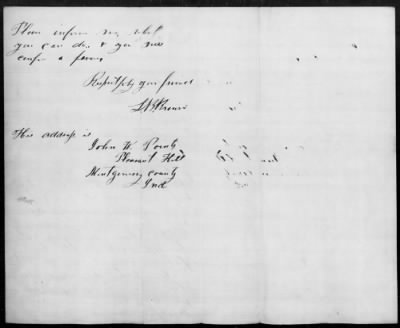 Please inform me what
you can do, & you will
confer a favor,
Respectfully your friend
His address is
John W.
Pleasant Hill
Montgomery County
Ind